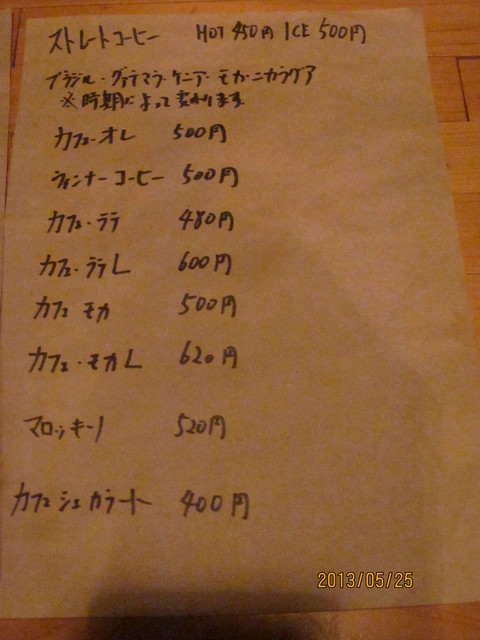 ストレートコーヒー HOT 450円 ICE 500円
ブラジル・グァテマラ・ケニア・モカ・ニカラグア
※時期によって変わります
カフェ・オレ 500円
ウィンナーコーヒー 500円
カフェ・ラテ 480円
カフェ・ラテL 600円
カフェ モカ 500円
カフェ・モカL 620円
マロッキーノ 520円
カフェ シェカラート 400円
2013/05/25